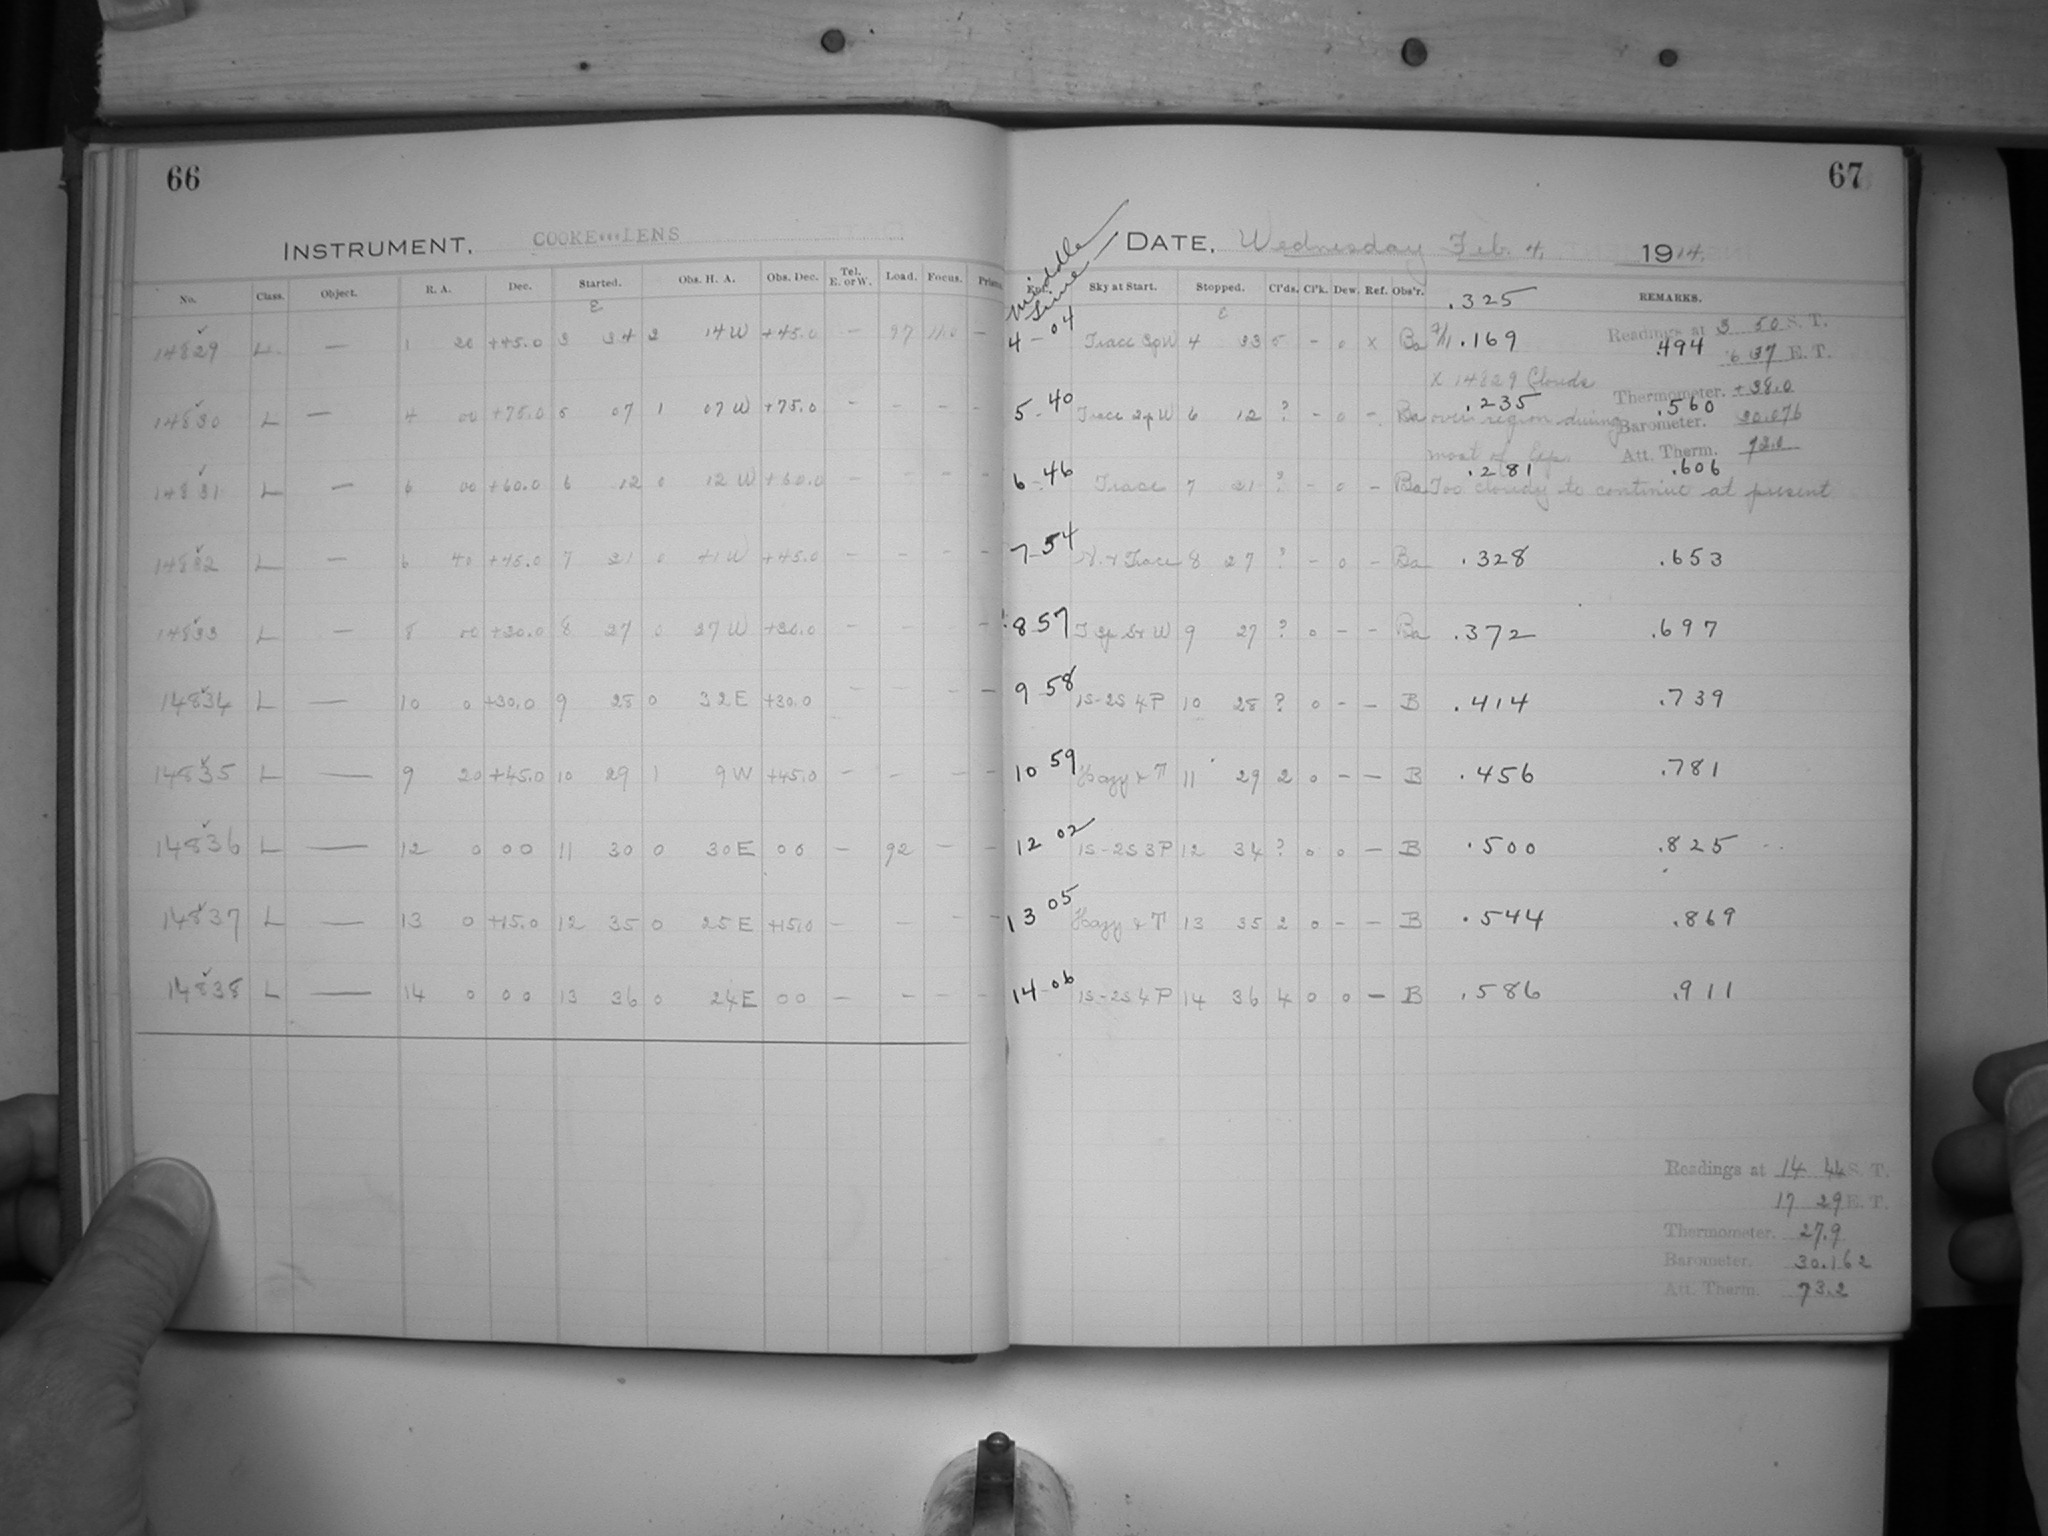 66
INSTRUMENT. COOKE LENS
No. Class. Object. R. A. Dec. Started. Obs. H. A. Obs. Dec. Tel. E. or W. Load. Focus. Prism.
14829 L — 1 20 +45.0 3 34 2 14 W +45.0 — 97 11.0 —
14830 L — 4 00 +75.0 5 07 1 07 W +75.0 — — — —
14831 L — 6 00 +60.0 6 12 0 12 W +60.0 — — — —
14832 L — 6 40 +45.0 7 21 0 41 W +45.0 — — — —
14833 L — 8 00 +30.0 8 27 0 27 W +30.0 — — — —
14834 L — 10 0 +30.0 9 28 0 32 E +30.0 — —
14835 L — 9 20 +45.0 10 29 1 9 W +45.0 — — — —
14836 L — 12 0 0 0 11 30 0 30 E 0 0 — 92 — —
14837 L — 13 0 +15.0 12 35 0 25 E +15.0 — — — —
14838 L — 14 0 0 0 13 36 0 24 E 0 0 — — — —
67
Middle Time
DATE. Wednesday Feb. 4, 1914.
Sky at Start. Stopped. Cl'ds. Cl'k. Dew. Ref. Obs'r. .325 REMARKS.
4-04 Trace 3p W 4 33 5 — 0 x Ba .169 .494 Readings at 3 50 S. T.
6 37 E. T.
x 14829 Clouds Thermometer. +38.0
5-40 Trace 2p W 6 12 ? — 0 — Ba over region during .235 .560 Barometer. 30.076
most of Exp. Att. Therm. 72.0
.281 .606
6-46 Trace 7 21 ? — 0 — Ba Too cloudy to continue at present
7-54 N. & Trace 8 27 ? — 0 — Ba .328 .653
8 57 9 27 ? 0 — — Ba .372 .697
9-58 1S-2S 4P 10 28 ? 0 — — B .414 .739
10 59 Hazy & T 11 29 2 0 — — B .456 .781
12 02 1S-2S 3P 12 34 ? 0 0 — B .500 .825
13 05 Hazy & T 13 35 2 0 — — B .544 .869
14-06 1S-2S 4P 14 36 4 0 0 — B .586 .911
Readings at 14 44 S. T.
17 29 E. T.
Thermometer. 27.9
Barometer. 30.162
Att. Therm. 73.2